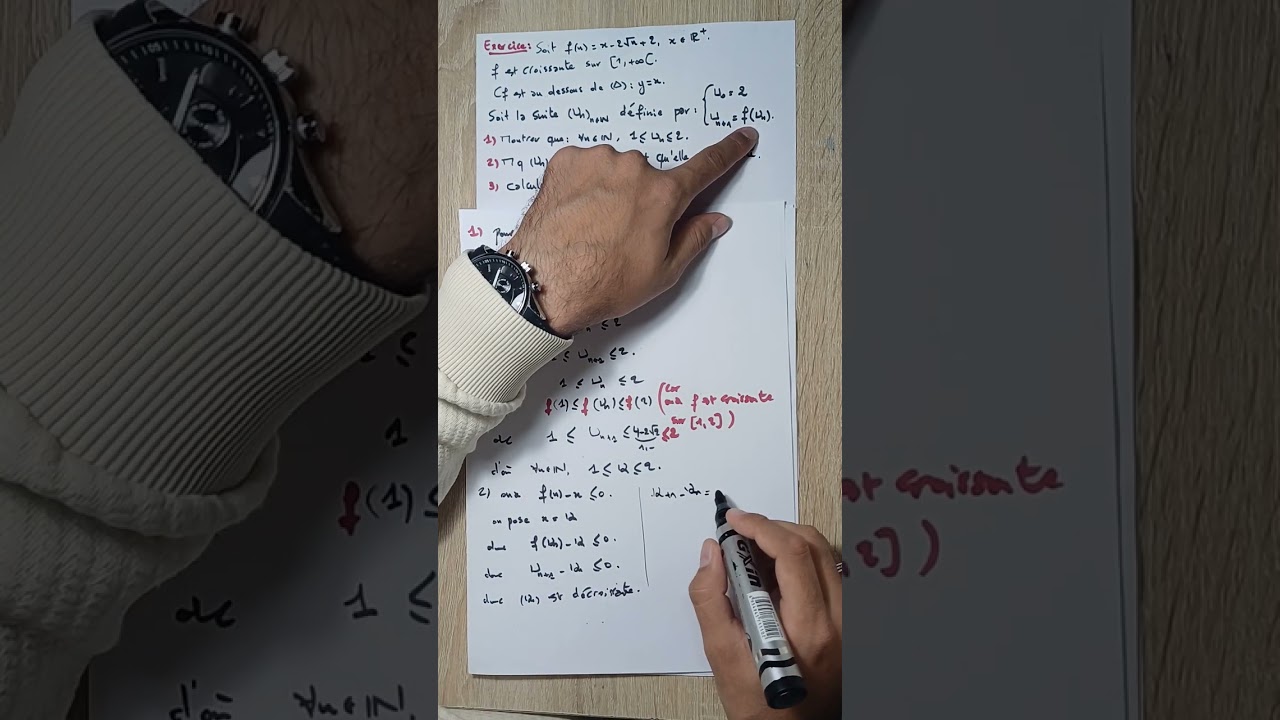 Exercice: Soit f(x) = x - 2√x + 2, x ∈ ℝ⁺.
f est croissante sur [1, +∞[.
Cf est au dessous de (Δ): y = x.
Soit la suite (Un)n∈ℕ définie par: { U₀ = 2
Un+1 = f(Un).
1) Montrer que: ∀n∈ℕ, 1 ≤ Un ≤ 2.
2) Mq (Un) qu'elle
3) calcul
1) pour
≤ 2
≤ Un+1 ≤ 2.
1 ≤ Un ≤ 2
f(1) ≤ f(Un) ≤ f(2) (car
ona f est croissante
sur [1,2])
dc 1 ≤ Un+1 ≤ 4-2√2 ≤ 2
d'où ∀n∈ℕ, 1 ≤ Un ≤ 2.
2) ona f(x) - x ≤ 0.
on pose x = Un
donc f(Un) - Un ≤ 0.
donc Un+1 - Un ≤ 0.
donc (Un) est décroissante.
Un+1 - Un =
GXIN